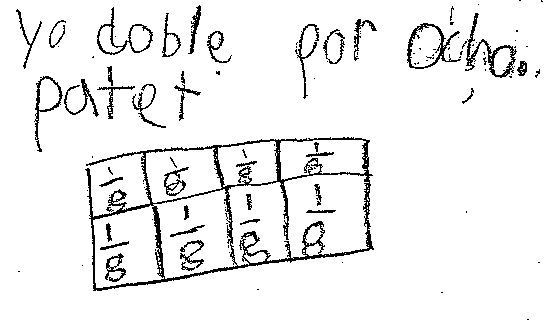 yo doble por ocho.
patet
1/8 1/8 1/8 1/8
1/8 1/8 1/8 1/8